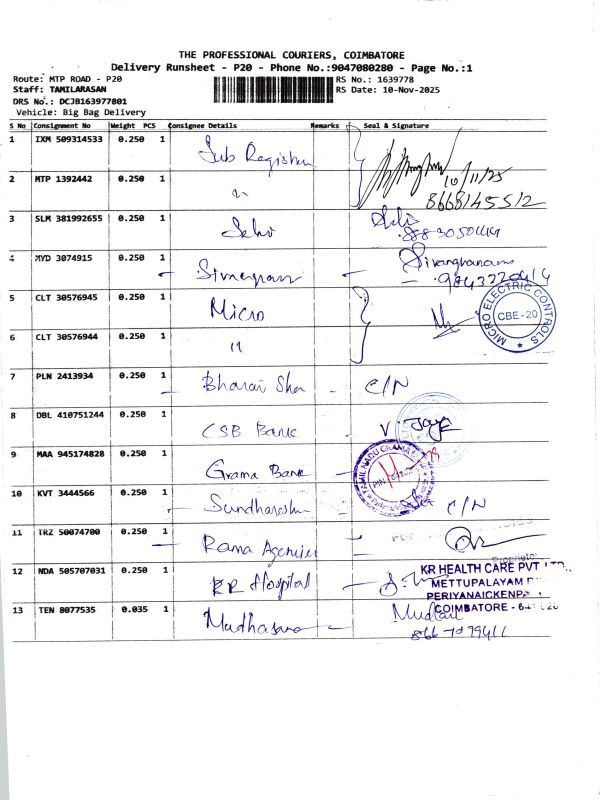 THE PROFESSIONAL COURIERS, COIMBATORE
Delivery Runsheet - P20 - Phone No.:9047080280 - Page No.:1
Route: MTP ROAD - P20
RS No.: 1639778
Staff: TAMILARASAN
RS Date: 10-Nov-2025
DRS No.: DCJB163977801
Vehicle: Big Bag Delivery
S No Consignment No Weight PCS Consignee Details Remarks Seal & Signature
1 IXM 509314533 0.250 1 Sub Register
10/11/25
2 MTP 1392442 0.250 1 "
8668145512
3 SLM 381992655 0.250 1 Selvi
4 MYD 3074915 0.250 1 Sivagnanam Sivangnanam
9843220414
5 CLT 30576945 0.250 1 Micro
MICRO ELECTRIC CONTROLS
CBE-20
6 CLT 30576944 0.250 1 "
7 PLN 2413934 0.250 1 Bharai Sha C/N
8 DBL 410751244 0.250 1 CSB Bank V. Jaya
9 MAA 945174828 0.250 1 Grama Bank
TAMILNADU GRAMA
10 KVT 3444566 0.250 1 Sundharesh C/N
11 TRZ 50074700 0.250 1 Rama Agencies
Proprietor
12 NDA 505707031 0.250 1 KR Hospital
KR HEALTH CARE PVT LTD.,
METTUPALAYAM
PERIYANAICKENPA
COIMBATORE - 641 020
13 TEN 8077535 0.035 1 Madhasana